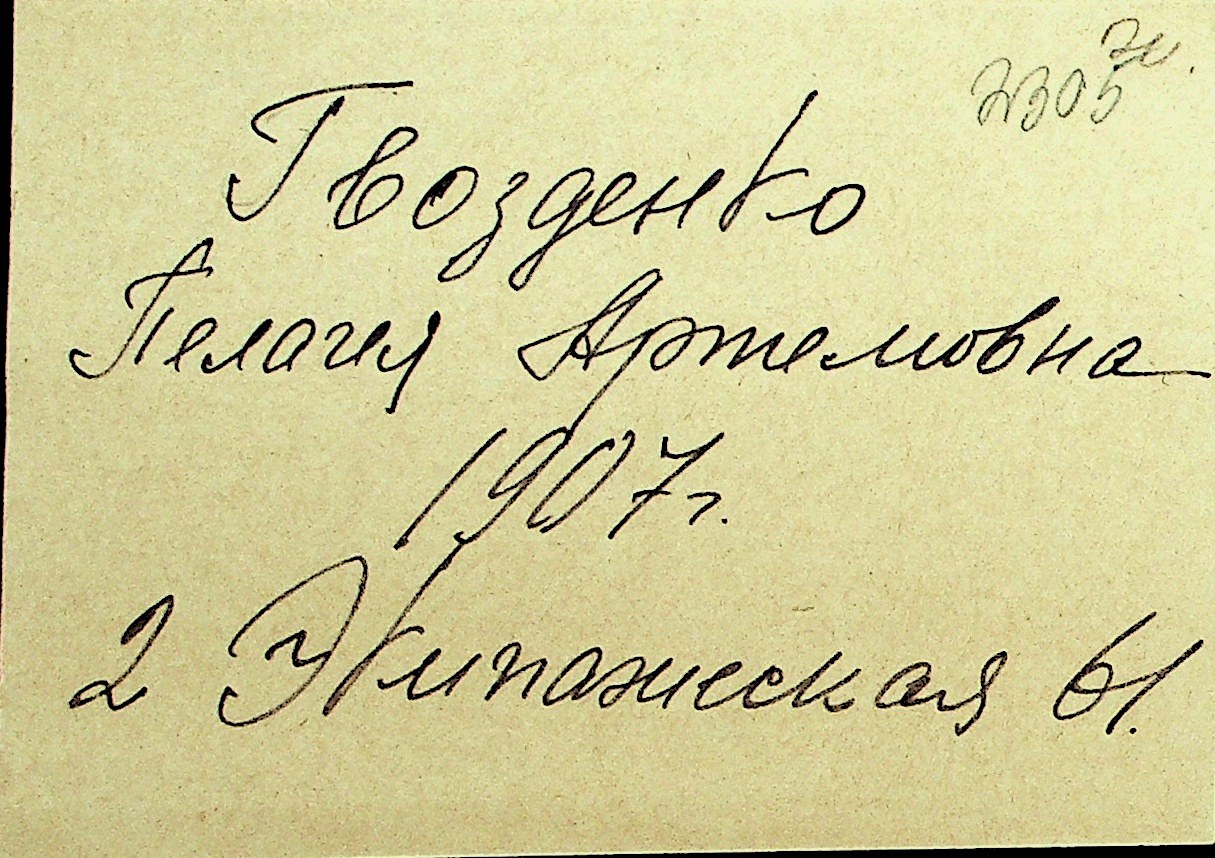 Гвозденко
Пелагея Артемовна
1907г.
2 Экипажеская 61.